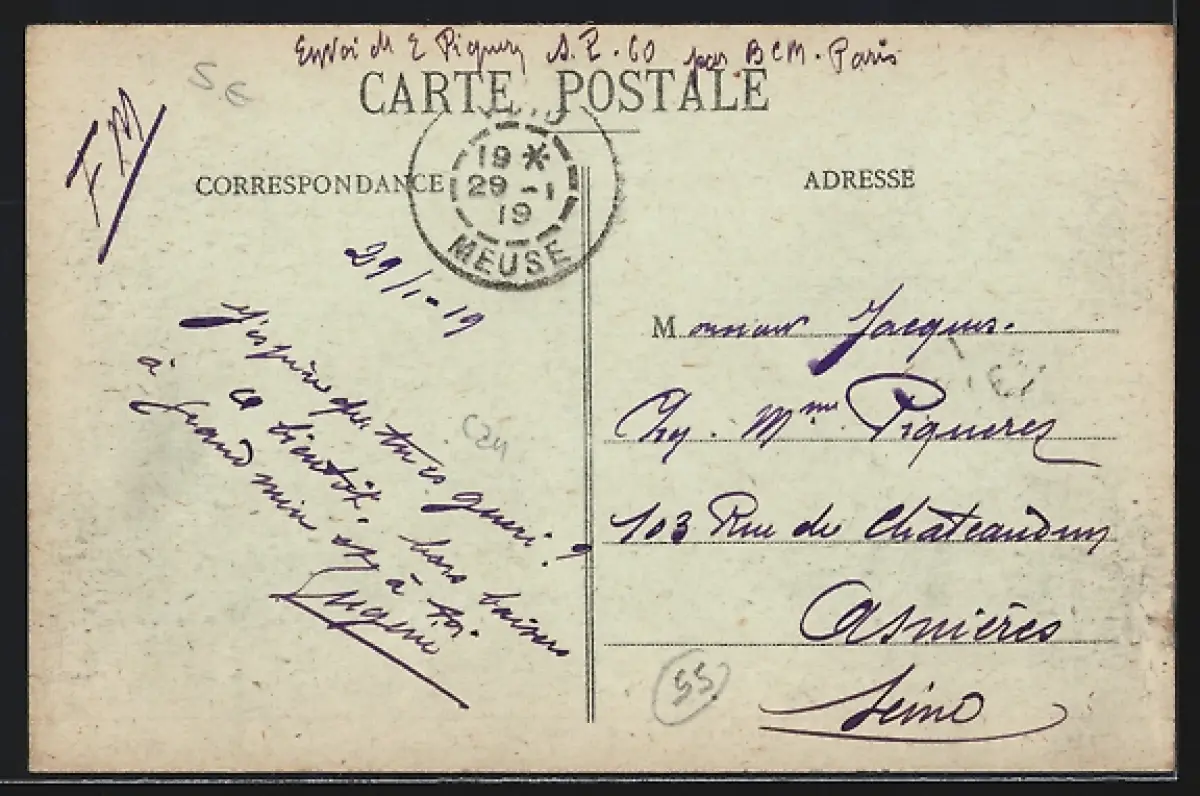 Envoi de E Piquerez S.P. 60 par BCM. Paris
CARTE POSTALE
FM
CORRESPONDANCE
ADRESSE
19 *
29 - 1
19
MEUSE
29/1-19
J'espère que tu es guéri ?
a bientôt. bons baisers
à grand mère et à toi.
Eugène
Monsieur Jacques.
Chez Mme Piquerez
103 Rue de Chateaudun
Asnières
Seine
55
C24